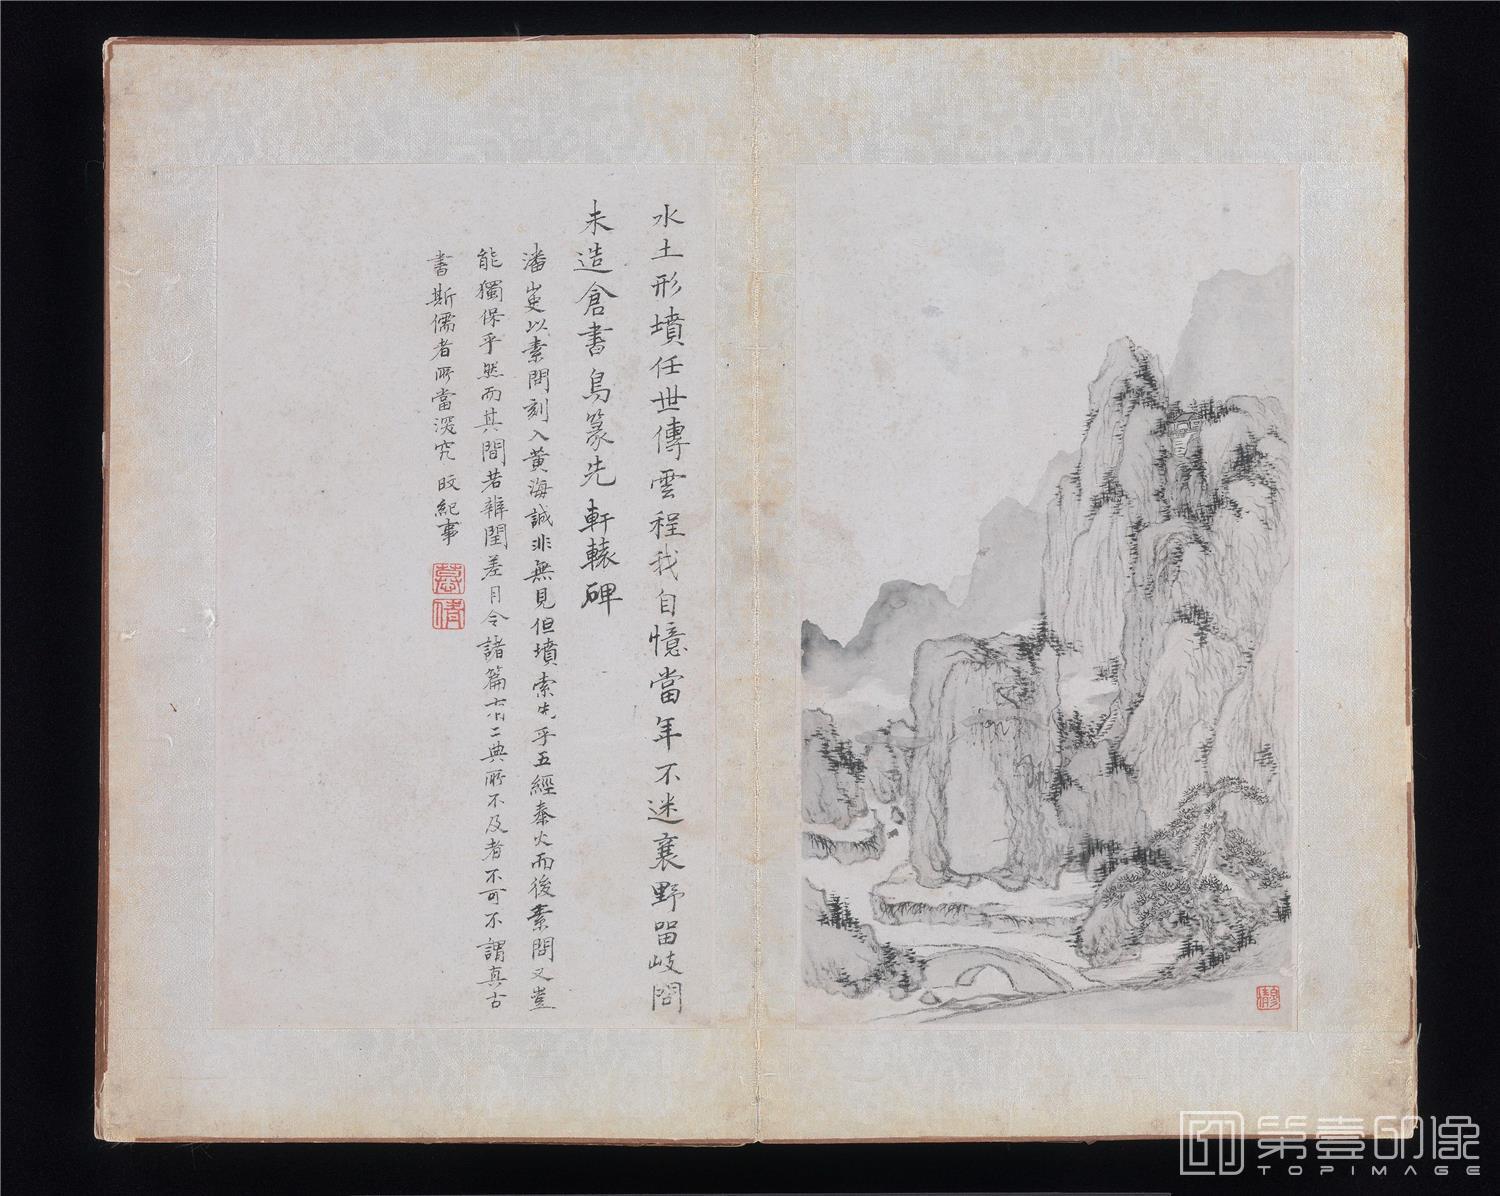 水土形墳任世傳雲程我自憶當年不迷襄野留岐問
未造倉書鳥篆先軒轅碑
潘叓以素問刻入黃海誠非無見但墳索先乎五經秦火而後素問又豈
能獨保乎然而其間若雜閏差月令諸篇亦二典所不及者不可不謂真古
書斯儒者所當深究 旼紀事
第壹印像
TOPIMAGE